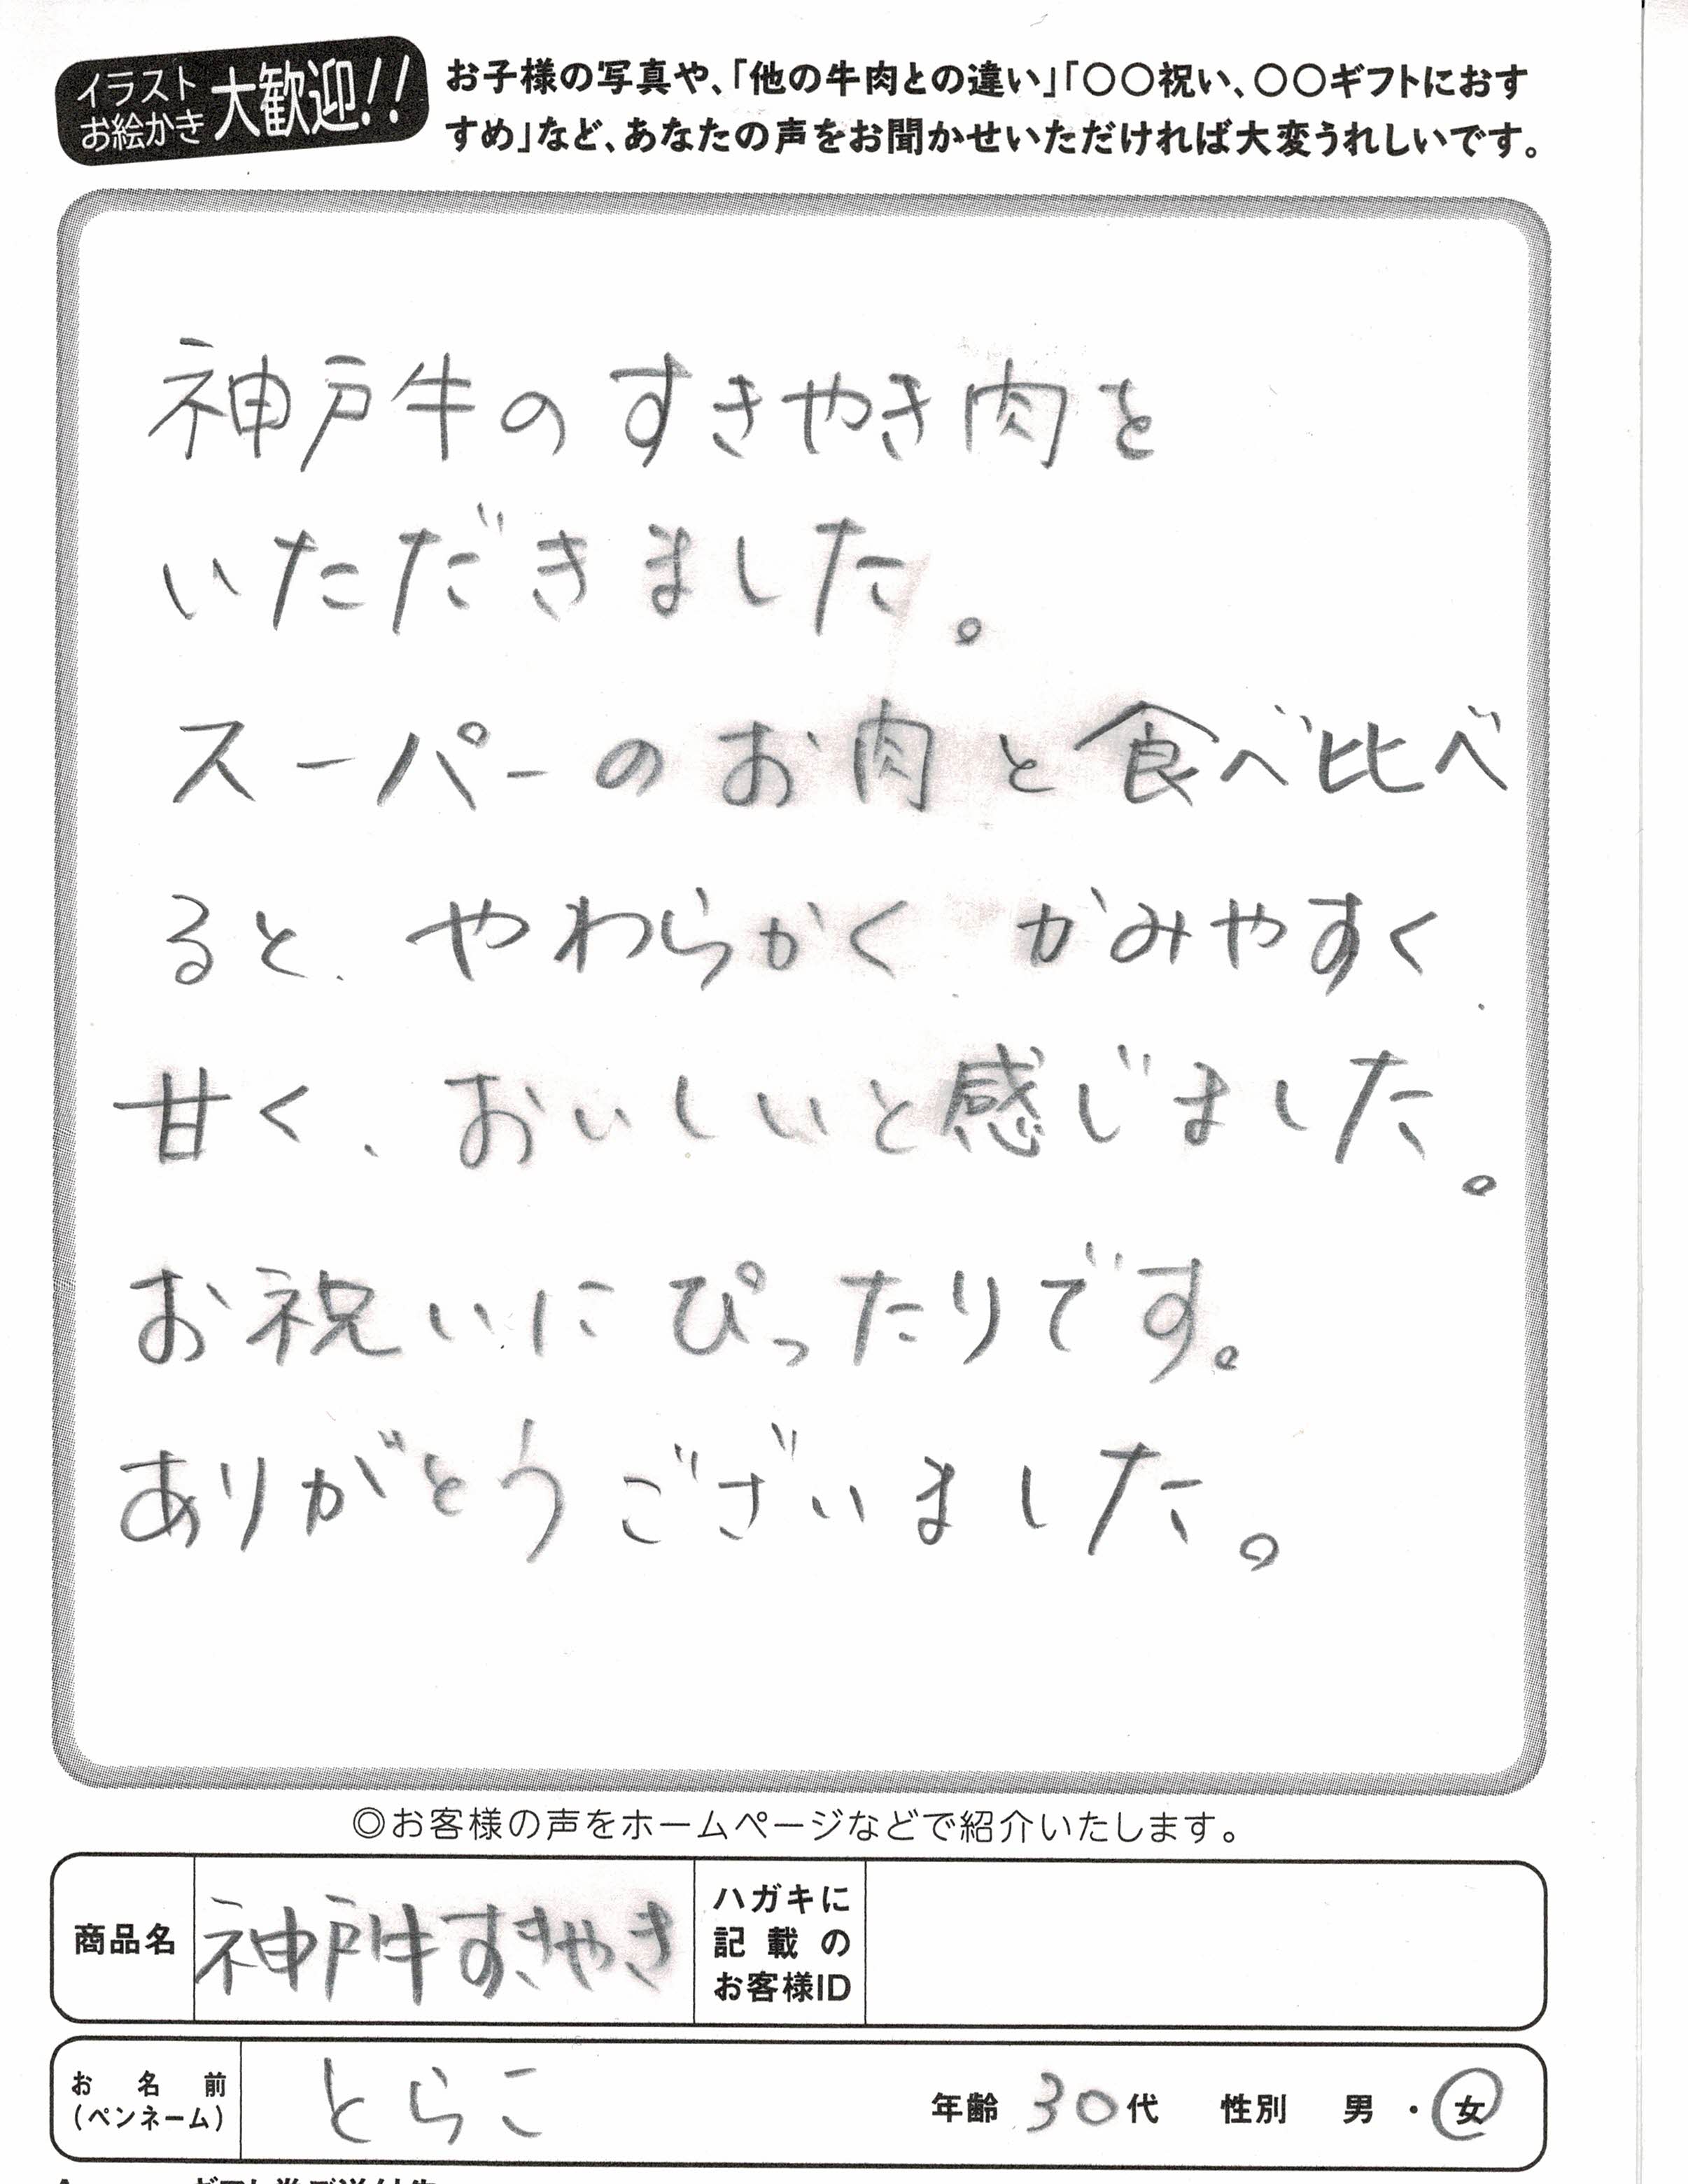 イラスト
お絵かき
大歓迎!!
お子様の写真や、「他の牛肉との違い」「〇〇祝い、〇〇ギフトにおす
すめ」など、あなたの声をお聞かせいただければ大変うれしいです。
神戸牛のすきやき肉を
いただきました。
スーパーのお肉と食べ比べ
ると、やわらかく かみやすく、
甘く、おいしいと感じました。
お祝いにぴったりです。
ありがとうございました。
◎お客様の声をホームページなどで紹介いたします。
商品名
神戸牛すきやき
ハガキに
記載の
お客様ID
お名前
(ペンネーム)
とらこ
年齢 30代 性別 男・女